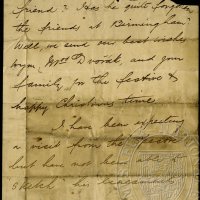 friend? Has he quite forgotten
the friends at Birmingham?
Well, we send our best wishes
to you, Mrs Dvorak, and your
family for the festive &
happy Christmas time
I have been expecting
a visit from the
but have not been able to
his